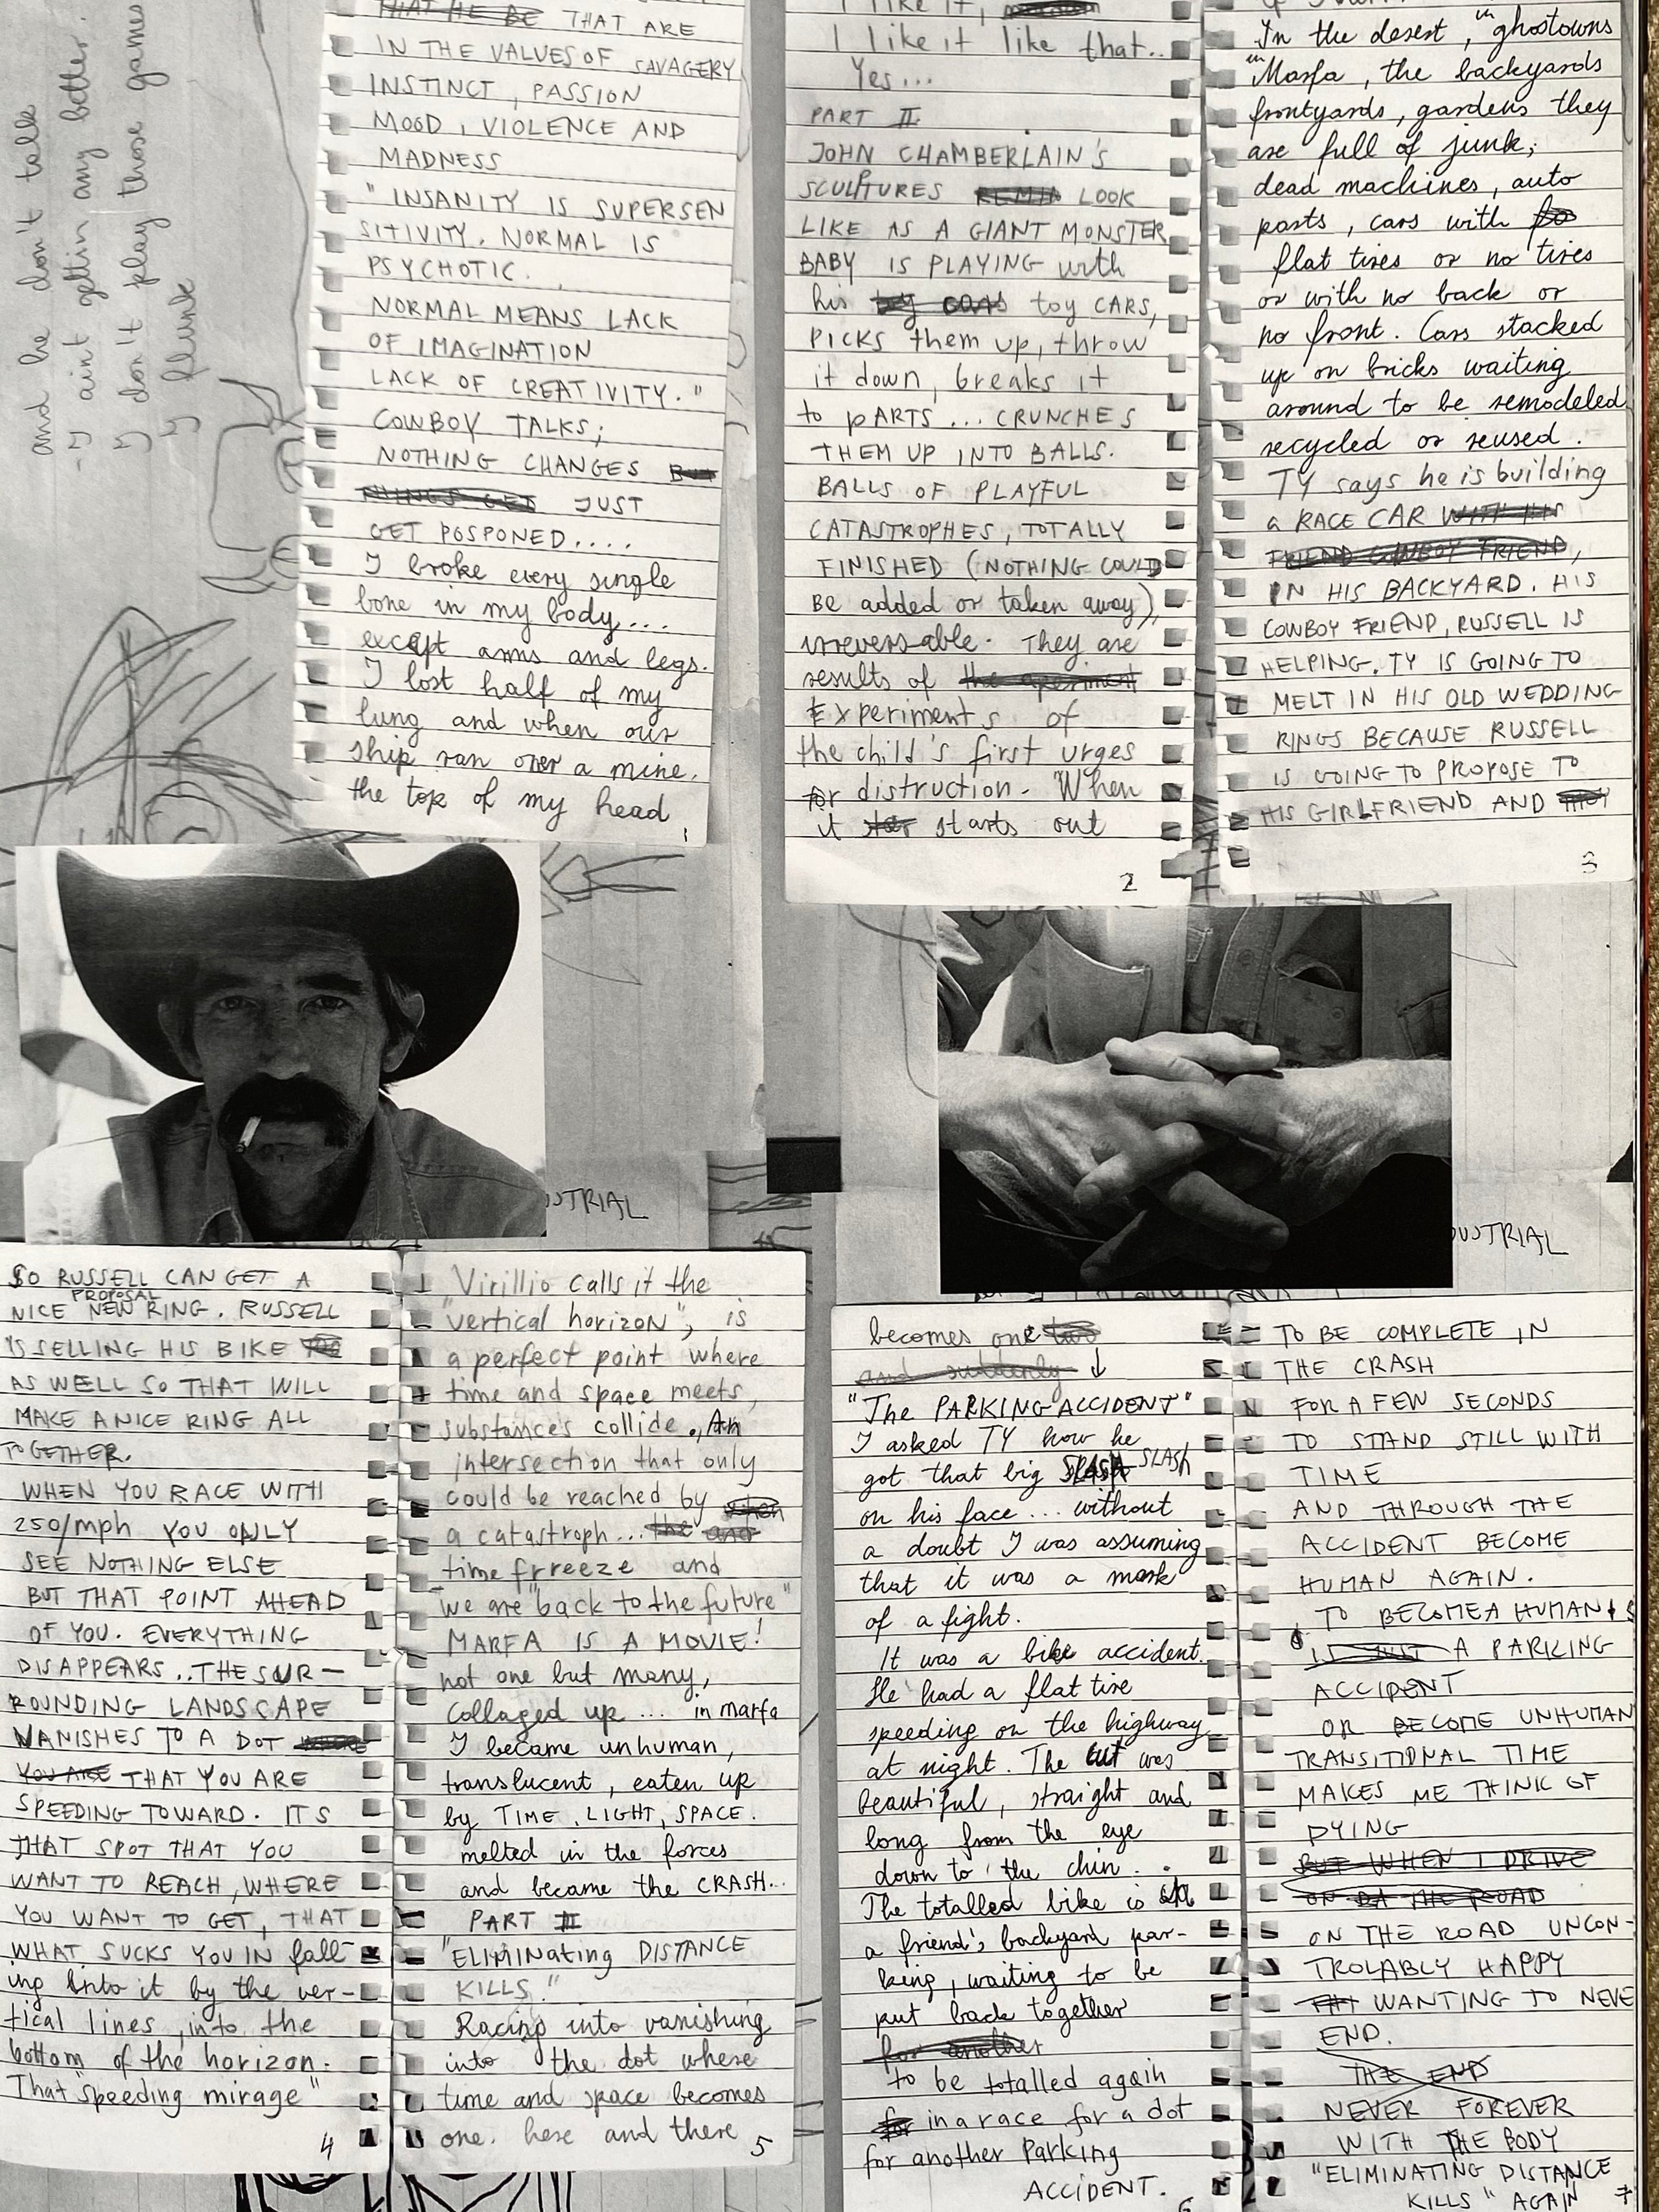 and he don't talk
- I aint gettin any better.
I don't play those games
I flunk
THAT HE BE THAT ARE
IN THE VALUES OF SAVAGERY
INSTINCT, PASSION
MOOD, VIOLENCE AND
MADNESS
"INSANITY IS SUPERSEN
SITIVITY. NORMAL IS
PSYCHOTIC.
NORMAL MEANS LACK
OF IMAGINATION
LACK OF CREATIVITY."
COWBOY TALKS;
NOTHING CHANGES BUT
THINGS GET JUST
GET POSPONED....
I broke every single
bone in my body...
except arms and legs.
I lost half of my
lung and when our
ship ran over a mine.
the top of my head
1
I like it,
I like it like that..
Yes...
PART II
JOHN CHAMBERLAIN'S
SCULPTURES REMIN LOOK
LIKE AS A GIANT MONSTER
BABY IS PLAYING with
his toy cars toy CARS,
PICKS them up, throw
it down, breaks it
to pARTS... CRUNCHES
THEM UP INTO BALLS.
BALLS OF PLAYFUL
CATASTROPHES, TOTALLY
FINISHED (NOTHING COULD
BE added or taken away),
irreversable. They are
results of the aperiment
Experiments of
the child's first urges
for distruction. When
it starts out
2
In the desert, in ghostowns
in Marfa, the backyards
frontyards, gardens they
are full of junk;
dead machines, auto
parts, cars with fo
flat tires or no tires
or with no back or
no front. Cars stacked
up on bricks waiting
around to be remodeled
recycled or reused.
TY says he is building
a RACE CAR WITH HIS
FRIEND COWBOY FRIEND,
IN HIS BACKYARD. HIS
COWBOY FRIEND, RUSSELL IS
HELPING. TY IS GOING TO
MELT IN HIS OLD WEDDING
RINGS BECAUSE RUSSELL
IS GOING TO PROPOSE TO
HIS GIRLFRIEND AND THEY
3
USTRIAL
DUSTRIAL
SO RUSSELL CAN GET A
PROPOSAL
NICE NEW RING. RUSSELL
IS SELLING HIS BIKE TOO
AS WELL SO THAT WILL
MAKE A NICE RING ALL
TOGETHER.
WHEN YOU RACE WITH
250/mph YOU ONLY
SEE NOTHING ELSE
BUT THAT POINT AHEAD
OF YOU. EVERYTHING
DISAPPEARS.. THE SUR-
ROUNDING LANDSCAPE
VANISHES TO A DOT WHERE
YOU ARE THAT YOU ARE
SPEEDING TOWARD. ITS
THAT SPOT THAT YOU
WANT TO REACH, WHERE
YOU WANT TO GET, THAT
WHAT SUCKS YOU IN fall-
ing into it by the ver-
tical lines, into the
bottom of the horizon.
That "speeding mirage"
4
Virillio calls it the
"vertical horizon", is
a perfect point where
time and space meets,
substances collide., An
intersection that only
could be reached by when
a catastroph... the and
time frreeze and
we are "back to the future"
MARFA IS A MOVIE!
not one but many,
collaged up... in marfa
I became unhuman,
translucent, eaten up
by TIME, LIGHT, SPACE.
melted in the forces
and became the CRASH...
PART II
"ELIMINating DISTANCE
KILLS."
Racing into vanishing
into the dot where
time and space becomes
one. here and there
5
becomes one two
and suddenly ↓
"The PARKING ACCIDENT"
I asked TY how he
got that big SLASH SLASH
on his face... without
a doubt I was assuming
that it was a mark
of a fight.
It was a bike accident.
He had a flat tire
speeding on the highway
at night. The cut was
beautiful, straight and
long from the eye
down to the chin..
The totalled bike is in
a friend's backyard par-
king, waiting to be
put back together
for another
to be totalled again
for in a race for a dot
for another Parking
ACCIDENT.
6
TO BE COMPLETE IN
THE CRASH
FOR A FEW SECONDS
TO STAND STILL WITH
TIME
AND THROUGH THE
ACCIDENT BECOME
HUMAN AGAIN.
TO BECOME A HUMAN IS
IS JUST A PARKING
ACCIDENT
OR BECOME UNHUMAN
TRANSITIONAL TIME
MAKES ME THINK OF
DYING
BUT WHEN I DRIVE
ON THE ROAD
ON THE ROAD UNCON-
TROLABLY HAPPY
WANTING TO NEVE
END.
THE END
NEVER FOREVER
WITH THE BODY
"ELIMINATING DISTANCE
KILLS" AGAIN
7